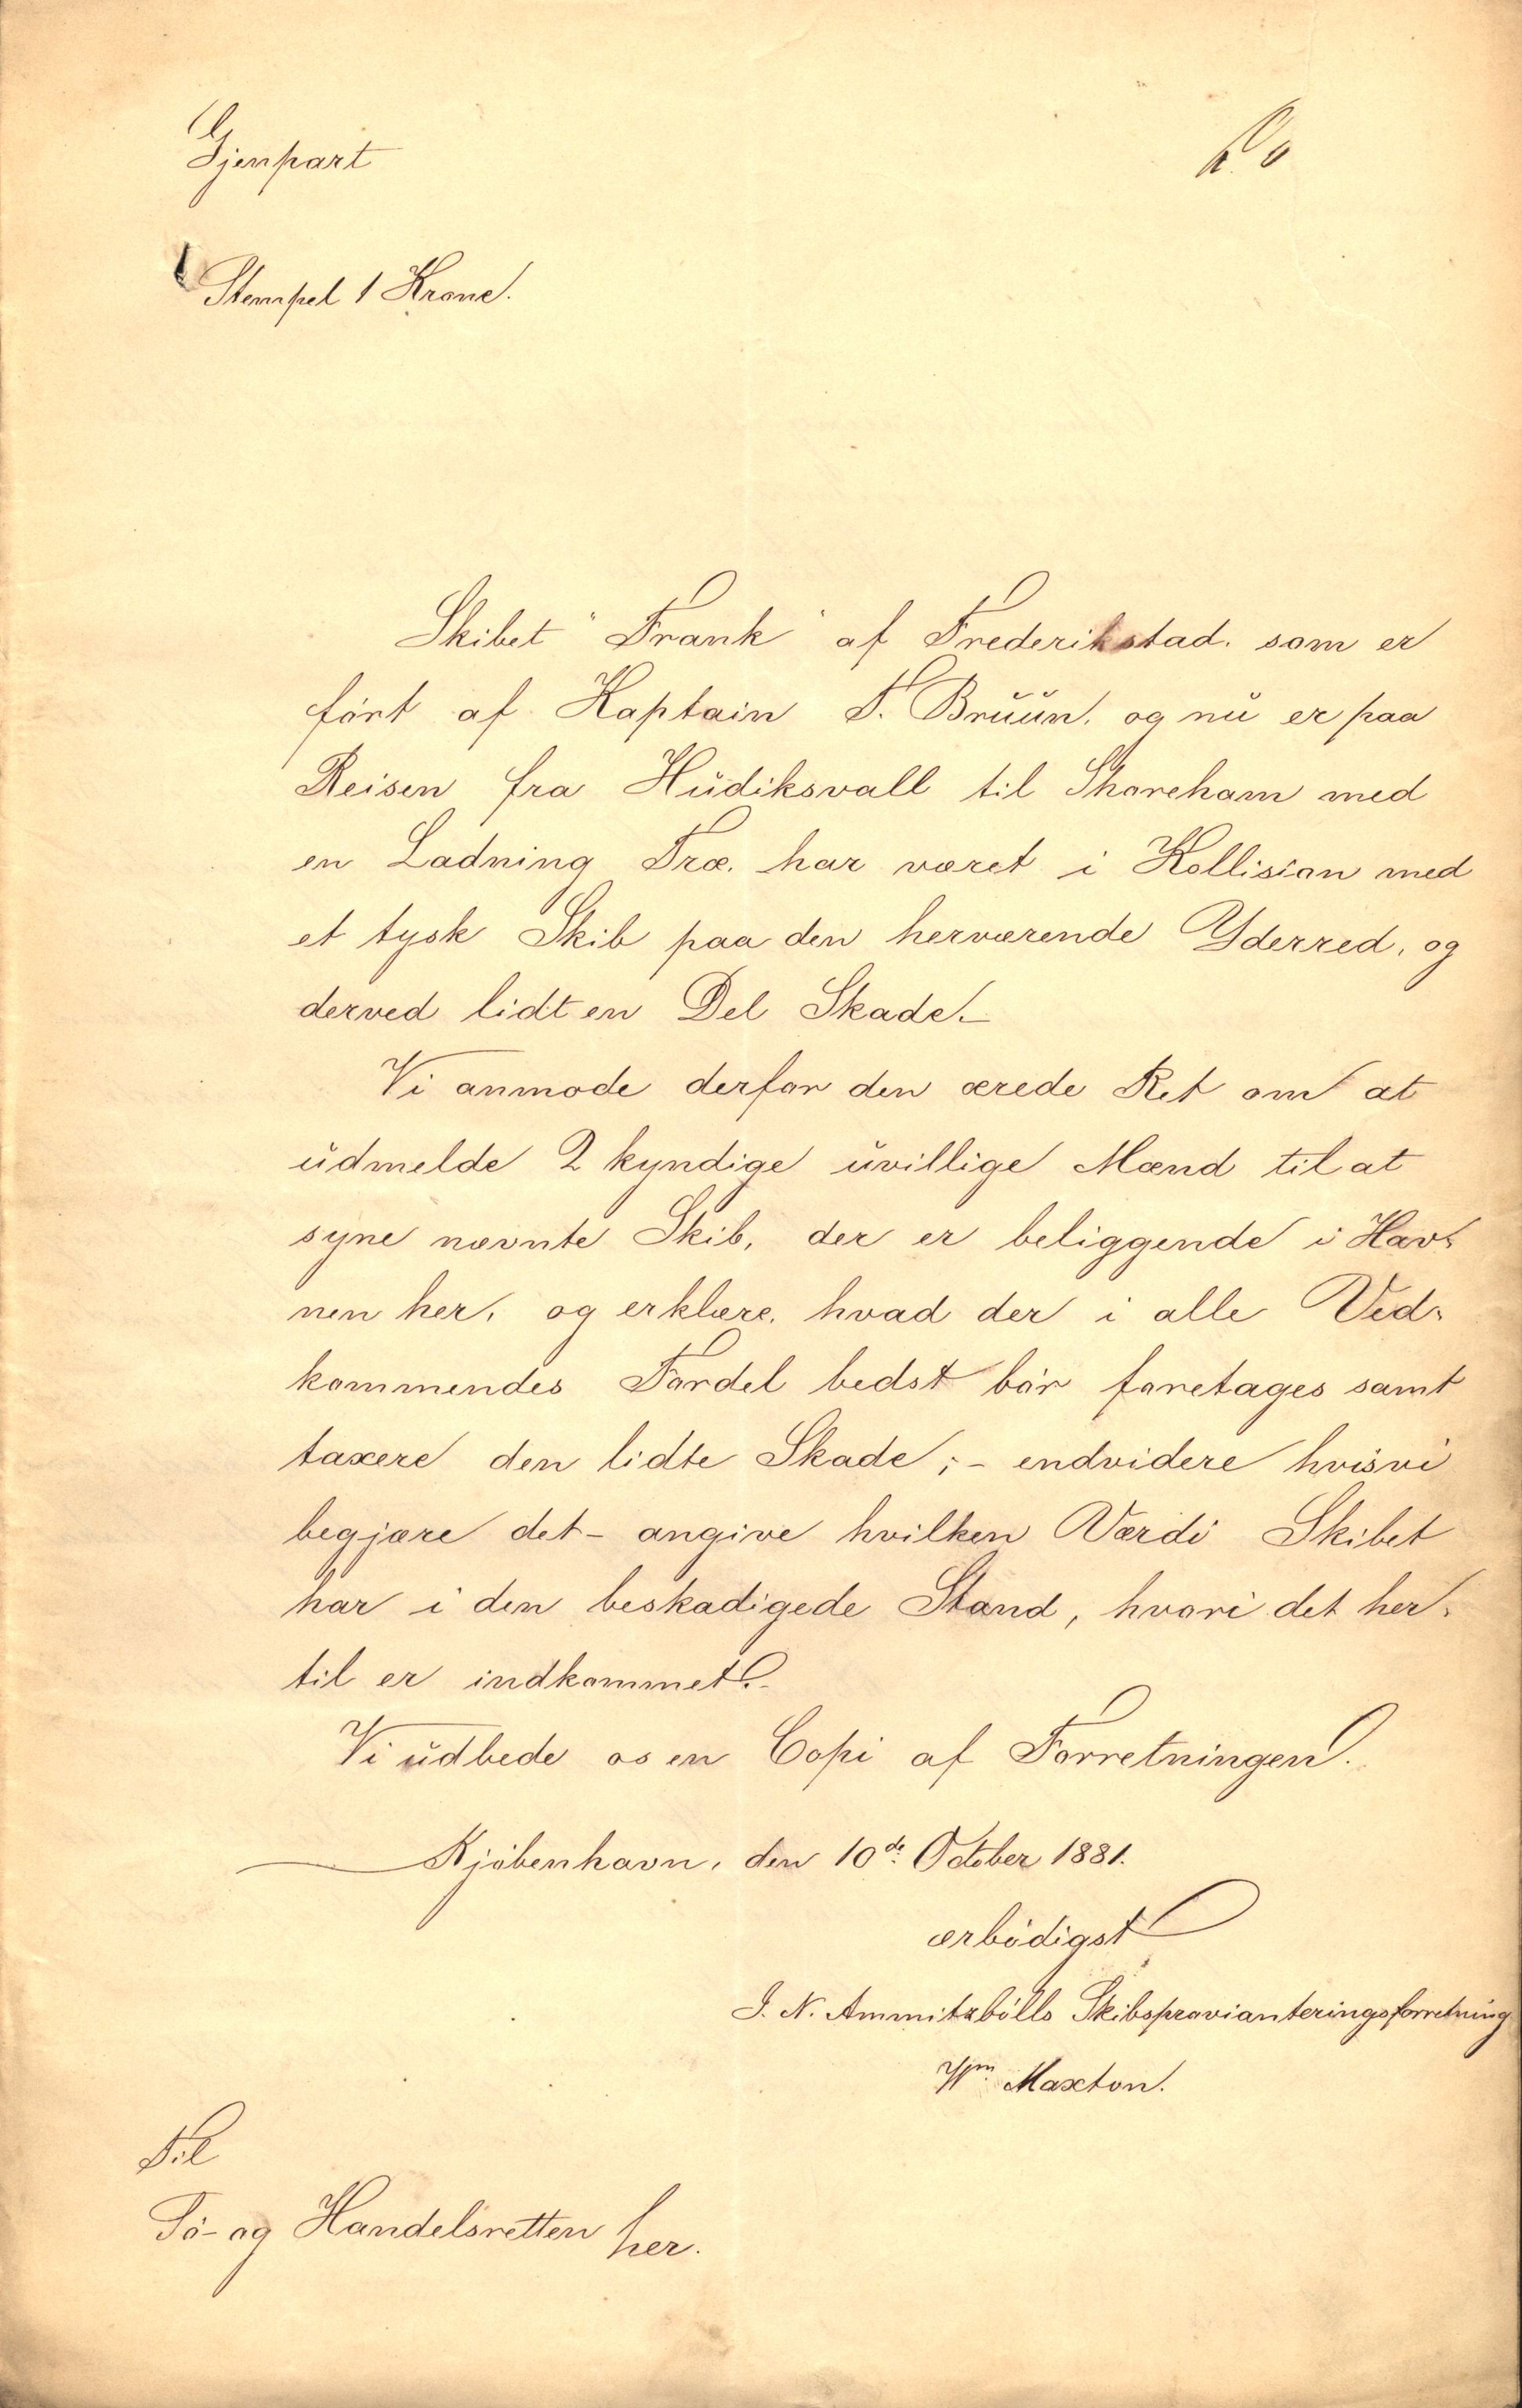 Gjenpart
Stempel 1 Krone.
Skibet "Frank" af Frederikstad, som er
ført af Kaptain F. Bruun, og nu er paa
Reisen fra Hudiksvall til Shoreham med
en Ladning Træ, har været i Kollision med
et tysk Skib paa den herværende Yderred, og
derved lidt en Del Skade.-
Vi anmode derfor den ærede Ret om at
udmelde 2 kyndige uvillige Mænd til at
syne nævnte Skib, der er beliggende i Hav-
nen her, og erklære, hvad der i alle Ved-
kommendes Fordel bedst bør foretages samt
taxere den lidte Skade;- endvidere hvis vi
begjære det- angive hvilken Værdi Skibet
har i den beskadigede Stand, hvori det her-
til er indkommet.-
Vi udbede os en Copi af Forretningen.
Kjøbenhavn, den 10de October 1881.
ærbødigst
J. N. Ammitzbølls Skibsprovianteringsforretning
Wm Maxton.
Til
Sø- og Handelsretten her.